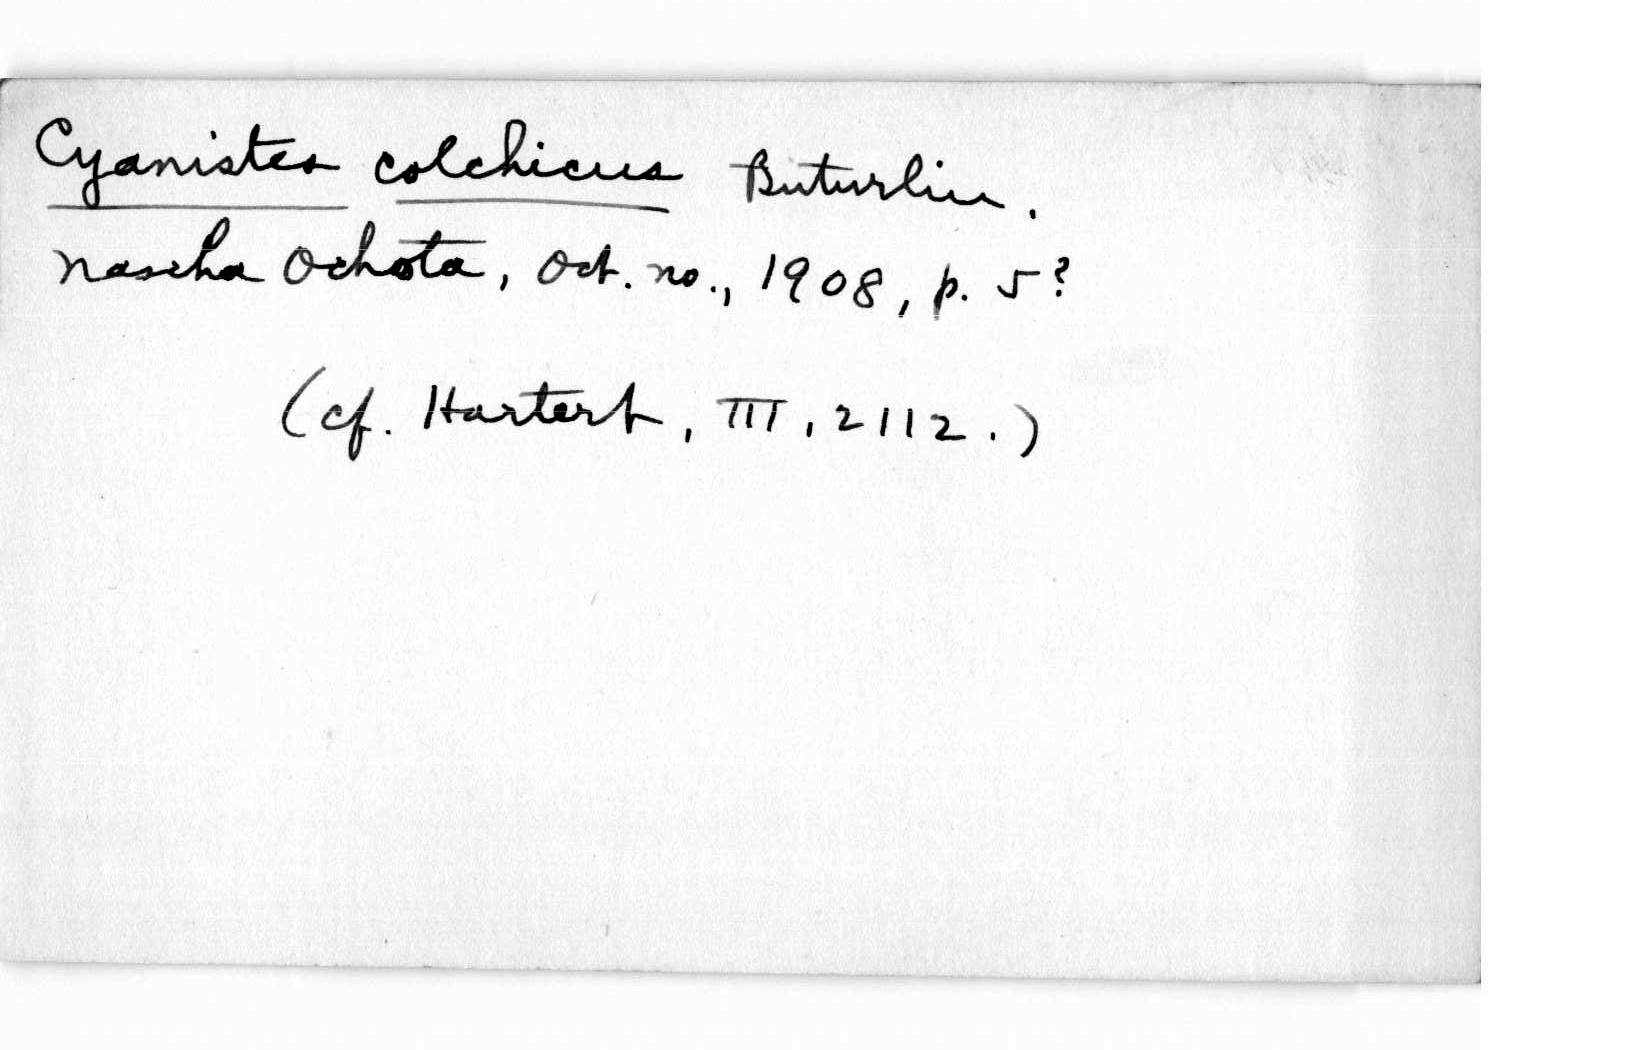 Cyanistes colchicus Buturlin.
Nascha Ochota, Oct. no., 1908, p. 5?
(cf. Hartert, III, 2112.)